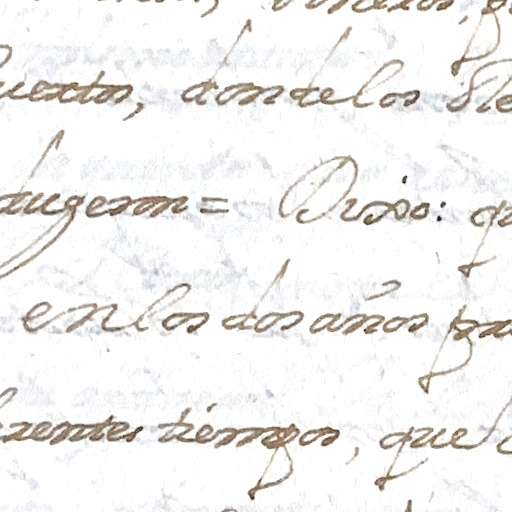 uertos, donde los
dugeron = Dixo: qu
en los dos años pa
erentes tiempos, que